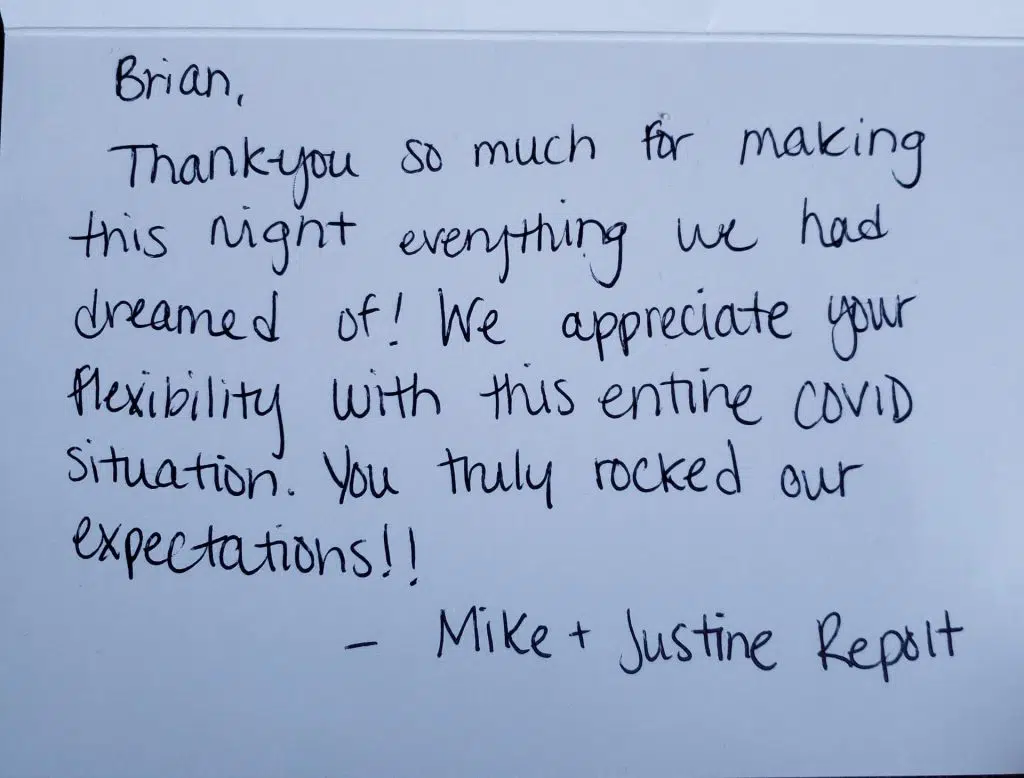 Brian,
Thankyou so much for making
this night everything we had
dreamed of! We appreciate your
flexibility with this entire COVID
situation. You truly rocked our
expectations!!
- Mike + Justine Repolt